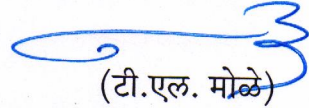 (टी.एल. मोळे)